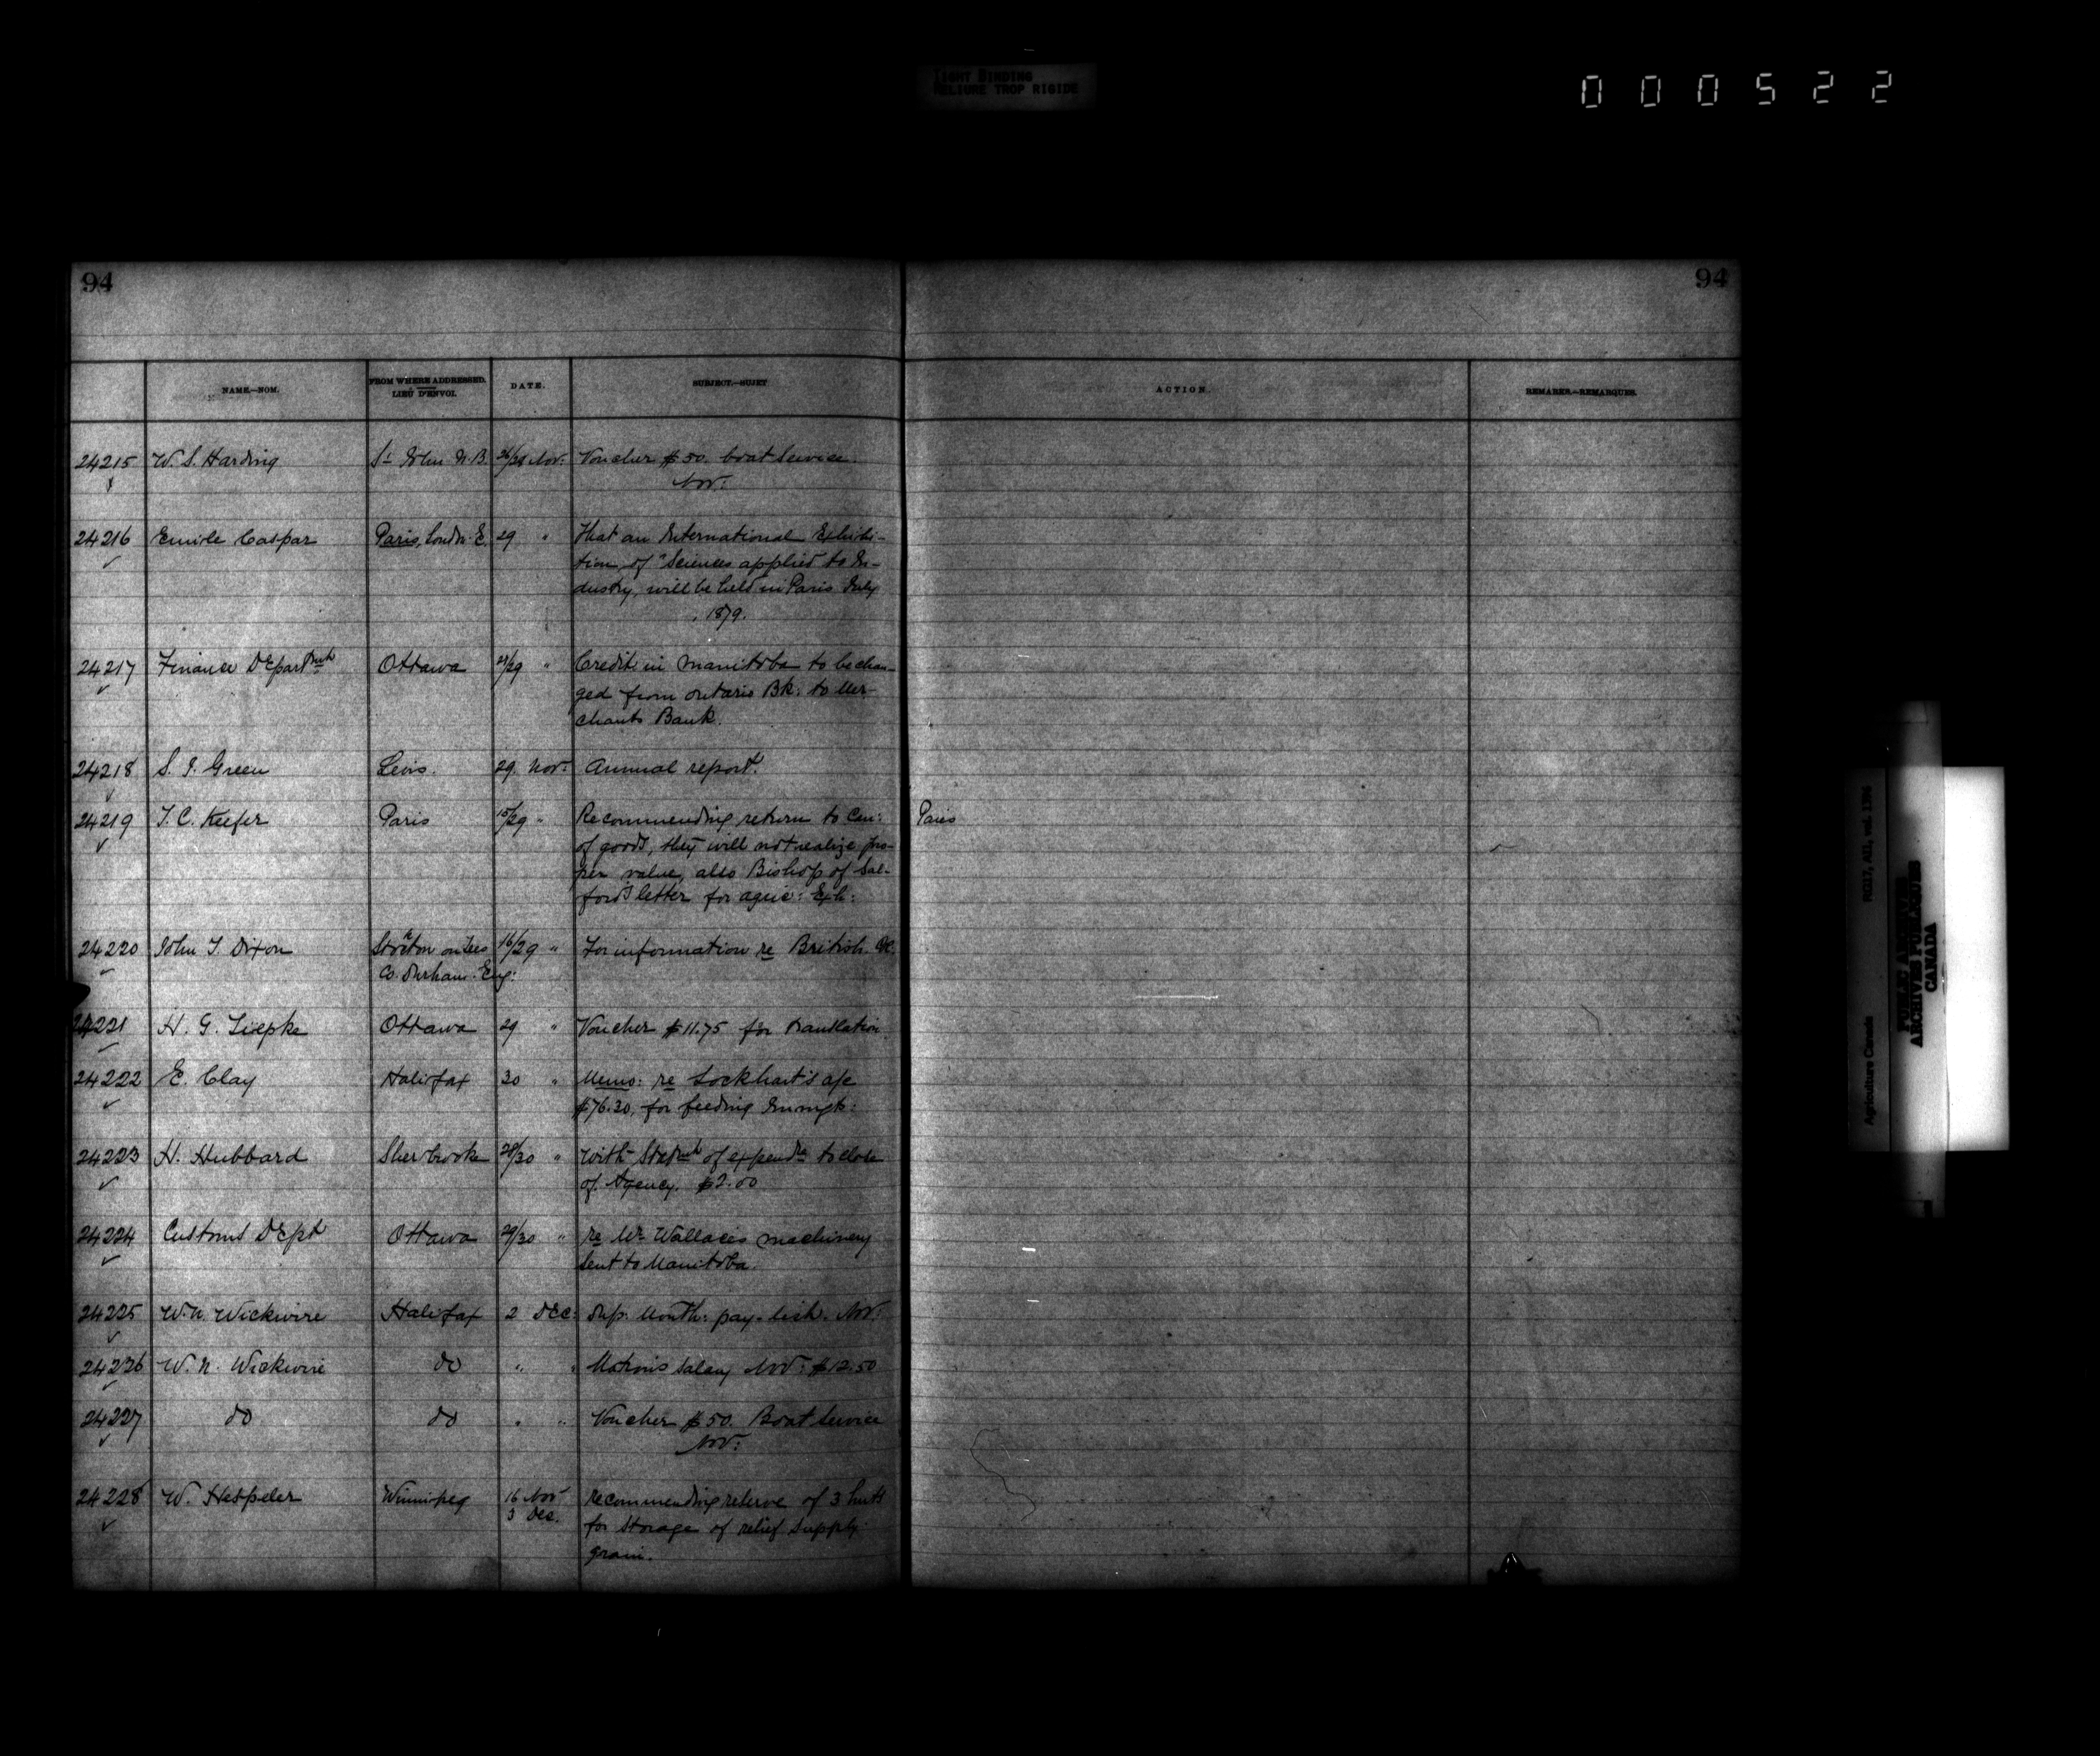 TIGHT BINDING
RELIURE TROP RIGIDE
000522
94
94
NAME.—NOM.
FROM WHERE ADDRESSED.
LIEU D'ENVOI.
DATE.
SUBJECT.—SUJET
ACTION.
REMARKS.—REMARQUES.
24215 W. S. Harding St John N.B. 26/28 Nov: Voucher $50. boat service
Nov:
24216 Emile Caspar Paris, London E. 29 " That an International Exhibi-
tion, of "Sciences applied to In-
dustry, will be held in Paris July
1879.
24217 Finance Departmnt Ottawa 28/29 " Credit in Manitoba to be chan-
ged from Ontario Bk: to Mer-
chants Bank.
24218 S. J. Green Levis. 29. Nov: Annual report.
24219 T. C. Keefer Paris 15/29 " Recommending return to Can: Paris
of goods, they will not realize pro-
per value, also Bishop of Sal-
ford's letter for agric: Exh:
24220 John T. Dixon Stockton on Tees 16/29 " For information re British
Co. Durham. Eng:
24221 H. G. Liepke Ottawa 29 " Voucher $11.75 for translation
24222 E. Clay Halifax 30 " Memo: re Lockhart's a/c
$76.30, for feeding Immgts:
24223 H. Hubbard Sherbrooke 28/30 " With Statmnt of expendre to close
of Agency. $2.00
24224 Customs Dept Ottawa 29/30 " re Mr Wallaces machinery
sent to Manitoba.
24225 W. N. Wickwire Halifax 2 Dec: Dup. Month: pay-list. Nov:
24226 W. N. Wickwire do " " Matron's salary Nov: $12.50
24227 do do " " Voucher $50. Boat service
Nov:
24228 W. Hespeler Winnipeg 16 Nov recommending reserve of 3 huts
3 Dec. for storage of relief supply
grain.
Agriculture Canada RG17, AII, vol. 1396
PUBLIC ARCHIVES
ARCHIVES PUBLIQUES
CANADA